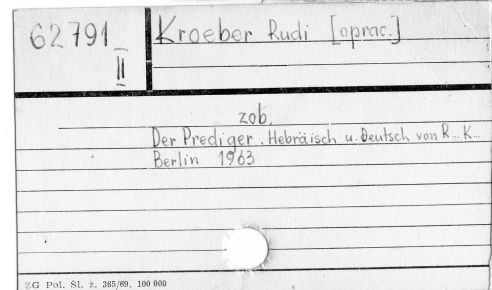 62791 II
Kroeber Rudi [oprac.]
zob.
Der Prediger. Hebräisch u. Deutsch von R... K...
Berlin 1963
ZG Pol. Śl. ż. 365/69, 100 000